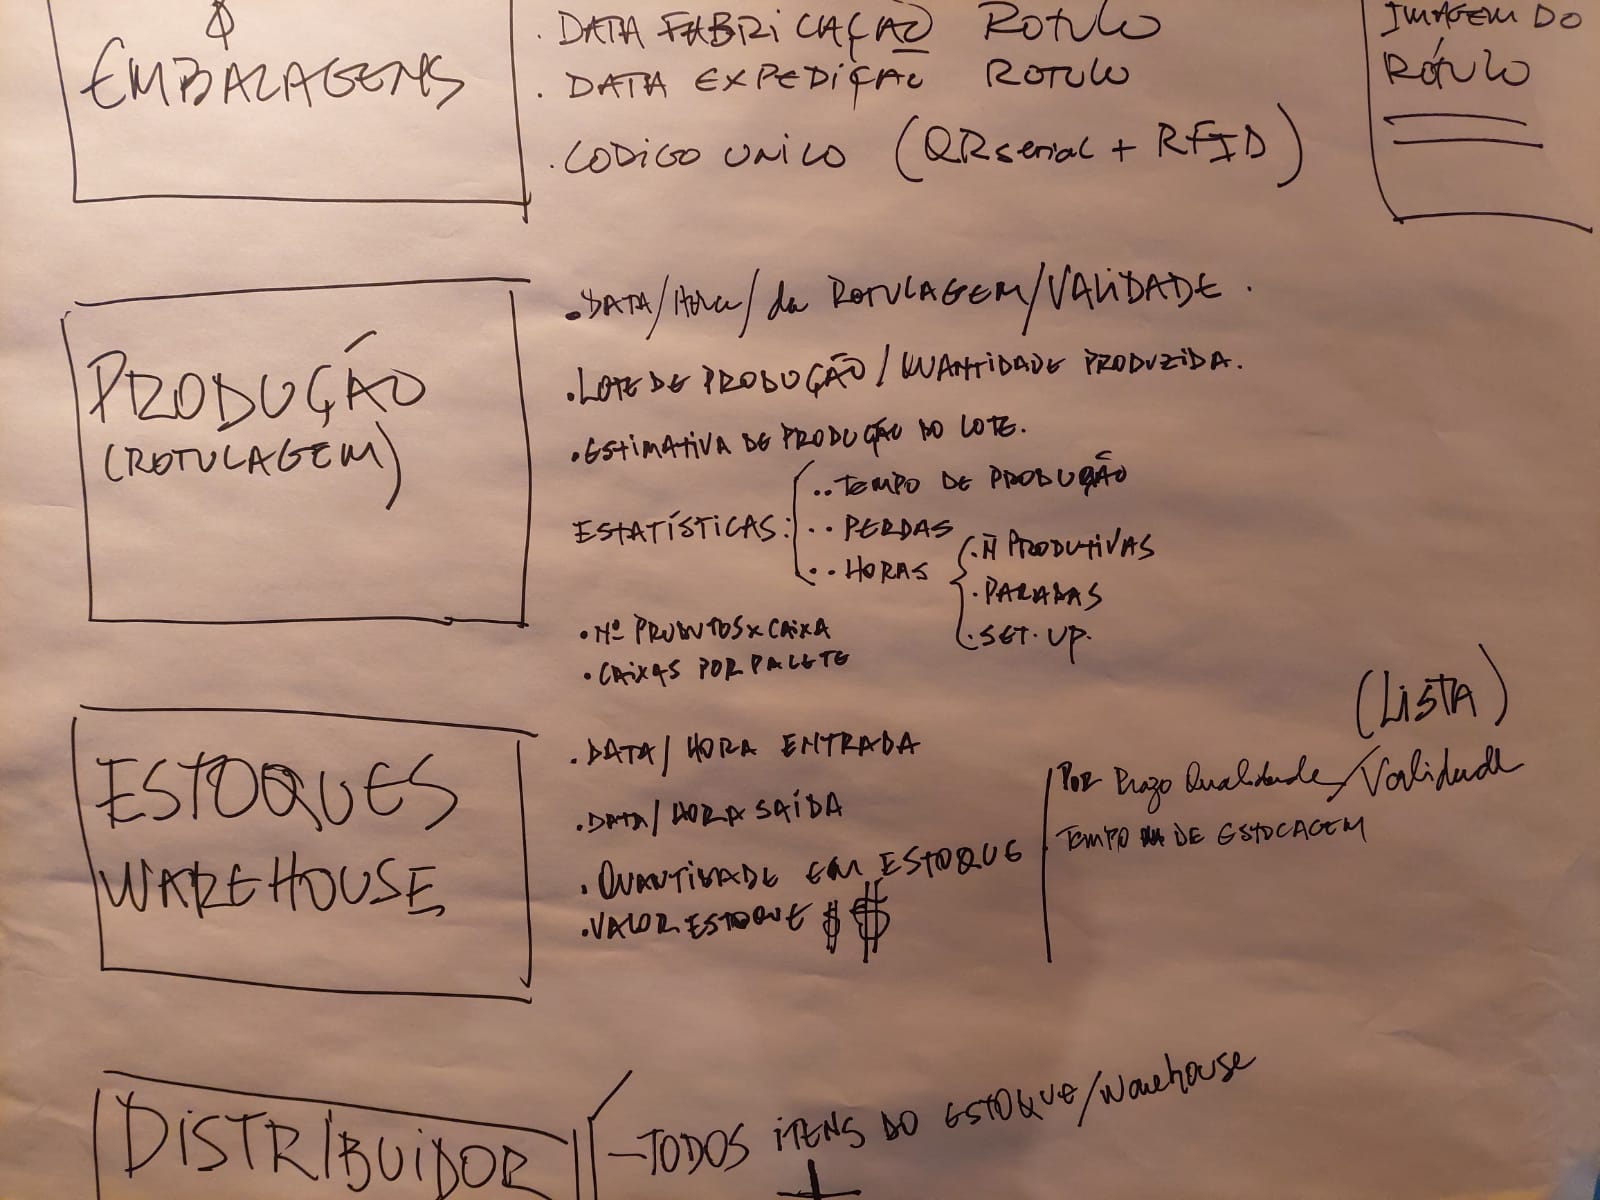 EMBALAGENS
. DATA FABRICAÇÃO ROTULO
. DATA EXPEDIÇÃO ROTULO
. CODIGO UNICO (QRserial + RFID)
IMAGEM DO
RÓTULO
PRODUÇÃO
(ROTULAGEM)
. DATA/Hora/da ROTULAGEM/VALIDADE.
. LOTE DE PRODUÇÃO/QUANTIDADE PRODUZIDA.
. ESTIMATIVA DE PRODUÇÃO DO LOTE.
ESTATÍSTICAS:
.. TEMPO DE PRODUÇÃO
.. PERDAS
.. HORAS
. Ñ PRODUTIVAS
. PARADAS
. SET. UP.
. Nº PRODUTOS x CAIXA
. CAIXAS POR PALETE
ESTOQUES
WAREHOUSE
. DATA/HORA ENTRADA
. DATA/HORA SAÍDA
. QUANTIDADE EM ESTOQUE
. VALOR ESTOQUE $ $
(LISTA)
POR Prazo Qualidade/Validade
. TEMPO DE ESTOCAGEM
DISTRIBUIDOR
- TODOS ITENS DO ESTOQUE/Warehouse
+